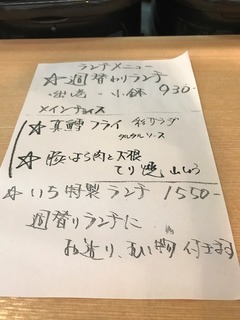 ランチメニュー
☆週替わりランチ
小鉢 930-
メインチョイス
☆真鱈フライ 彩サラダ
タルタルソース
☆豚ばら肉と大根
てり焼 山しょう
☆いち特製ランチ 1550-
週替りランチに
お造り、 付きます